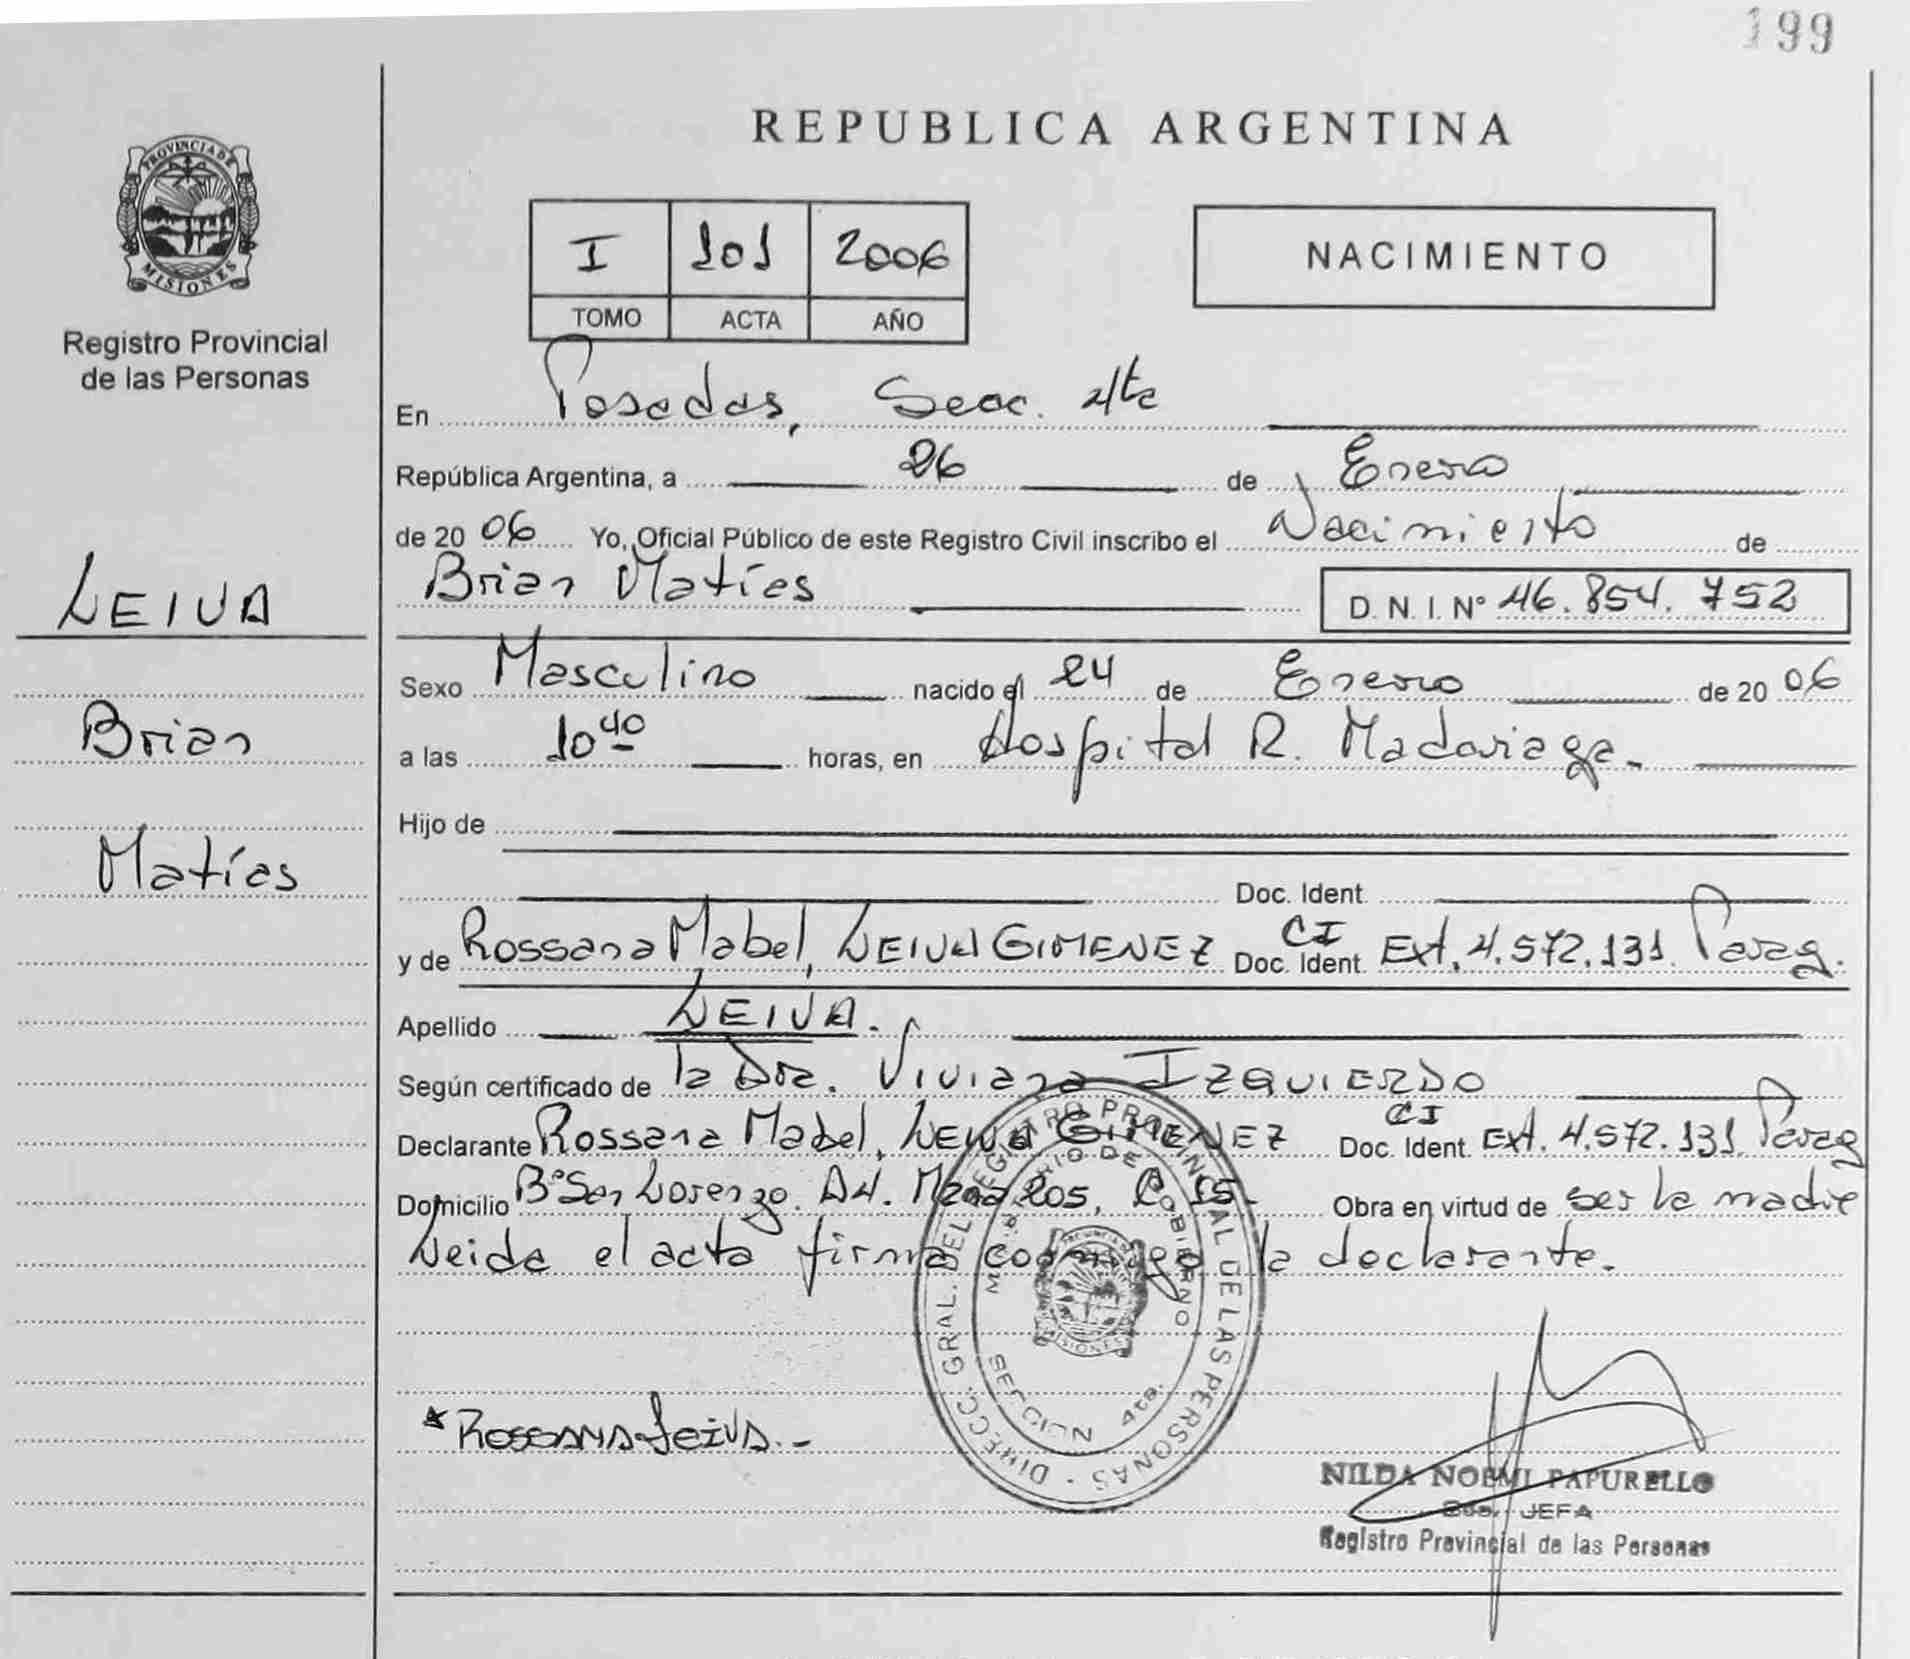 199
PROVINCIA DE
MISIONES
Registro Provincial
de las Personas
LEIVA
Brian
Matías
REPUBLICA ARGENTINA
I 101 2006
TOMO ACTA AÑO
NACIMIENTO
En Posadas, Secc. 4ta
República Argentina, a 26 de Enero
de 20 06 Yo, Oficial Público de este Registro Civil inscribo el Nacimiento de
Brian Matías D. N. I. Nº 46.854.752
Sexo Masculino nacido el 24 de Enero de 20 06
a las 10 40 horas, en Hospital R. Madariaga.
Hijo de
Doc. Ident.
y de Rossana Mabel, LEIVA GIMENEZ Doc. Ident. CI Ext. 4.572.131 Parag.
Apellido LEIVA.
Según certificado de la Dra. Viviana IZQUIERDO
Declarante Rossana Mabel, LEIVA GIMENEZ Doc. Ident. CI Ext. 4.572.131 Parag
Domicilio Bº San Lorenzo. Av. 205, Obra en virtud de ser la madre
Leida el acta firma conmigo la declarante.
DIRECC. GRAL. DEL REGISTRO PROVINCIAL DE LAS PERSONAS
MINISTERIO DE GOBIERNO
MISIONES
SECCION 4ta.
Rossana Leiva.-
NILDA NOEMI PAPURELLO
JEFA
Registro Provincial de las Personas